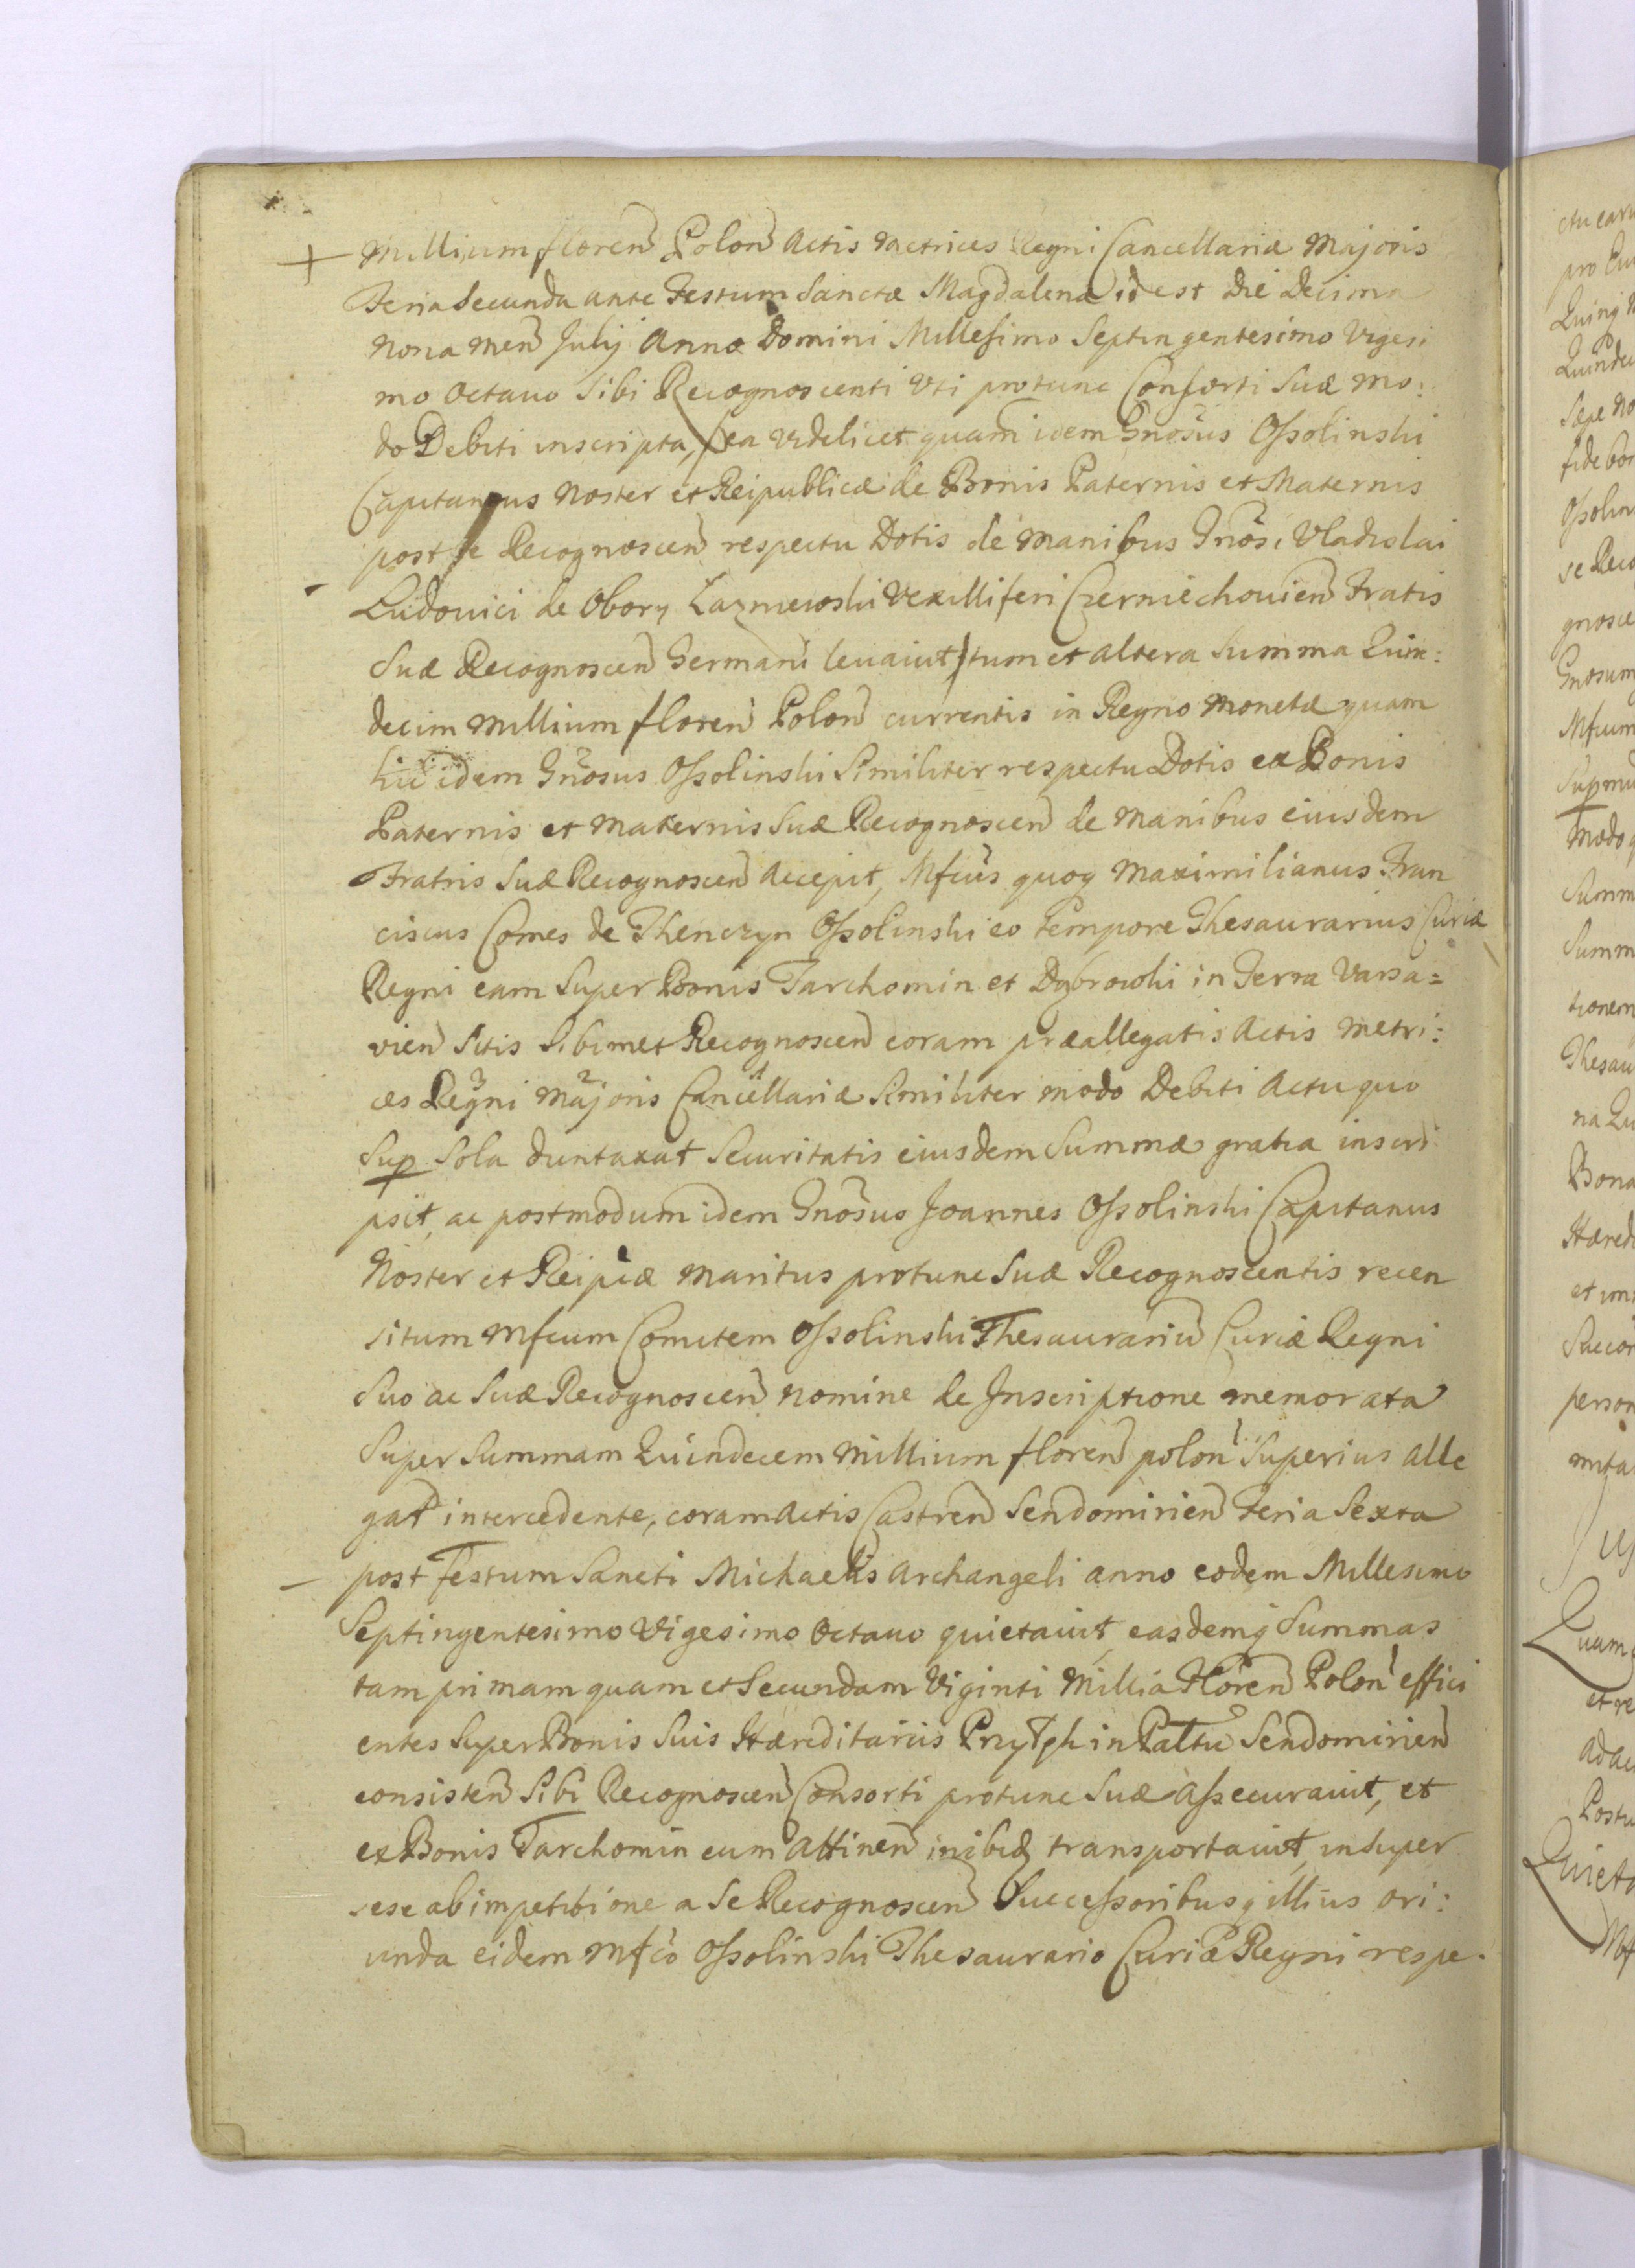 Millium floren Polon Actis Metrices Regni Cancellariæ Majoris
Feria Secunda ante Festum Sanctæ Magdalenæ id est Die Decima
Nona Men Julij Anno Domini Millesimo Septingentesimo Vigesi
mo Octauo Sibi Recognoscenti Vti protunc Consorti Suæ mo:
do Debiti inscripta, (ea videlicet quam idem Gnosus Ossolinski
Capitaneus Noster et Reipublicæ de Bonis Paternis et Maternis
post se Recognoscen respectu Dotis de Manibus Gnosi Vladislai
Ludovici de Obory Lazniewski Vexilliferi Czerniechouien Fratis
Suæ Recognoscen Germani leuauit) tum et altera Summa Quin:
decim Millium floren Polon currentis in Regno Monetæ quam
hic idem Gnosus Ossolinski Similiter respectu Dotis ex Bonis
Paternis et Maternis Suæ Recognoscen de Manibus eiusdem
Fratris Suæ Recognoscen Accepit, Mfcus quoq Maximilianus Fran
ciscus Comes de Thenczyn Ossolinski eo tempore Thesaurarius Curiæ
Regni eam Super Bonis Tarchomin et Dąbrowki in Terra Varsa=
vien Sitis Sibimet Recognoscen coram præallegatis Actis Metri:
ces Regni Majoris Cancellariæ Similiter modo Debiti Actu quo
Sup Sola duntaxat Securitatis eiusdem Summæ gratia inscri
psit, ac postmodum idem Gnosus Joannes Ossolinski Capitanus
Noster et Reipcæ Maritus protunc Suæ Recognoscentis recen
situm Mfcum Comitem Ossolinski Thesaurariu Curiæ Regni
Suo ac Suæ Recognoscen nomine de Inscriptione memorata
Super Summam Quindecem Millium floren polon Superius alle
gat intercedente, coram Actis Castren Sendomirien Feria Sexta
post Festum Sancti Michaelis Archangeli anno eodem Millesimo
Septingentesimo Vigesimo Octauo quietauit, easdemq Summas
tam primam quam et Secundam Viginti Millia Floren Polon effici
entes Super Bonis Suis Hæreditariis Przytyk in Palttu Sendomirien
consisten Sibi Recognoscen Consorti protunc Suæ Assecurauit, et
ex Bonis Tarchomin cum Attinen inibiq transportauit, insuper
sese ab impetitione a Se Recognoscen Successoribusq illius ori:
unda eidem Mfco Ossolinski Thesaurario Curiæ Regni respe